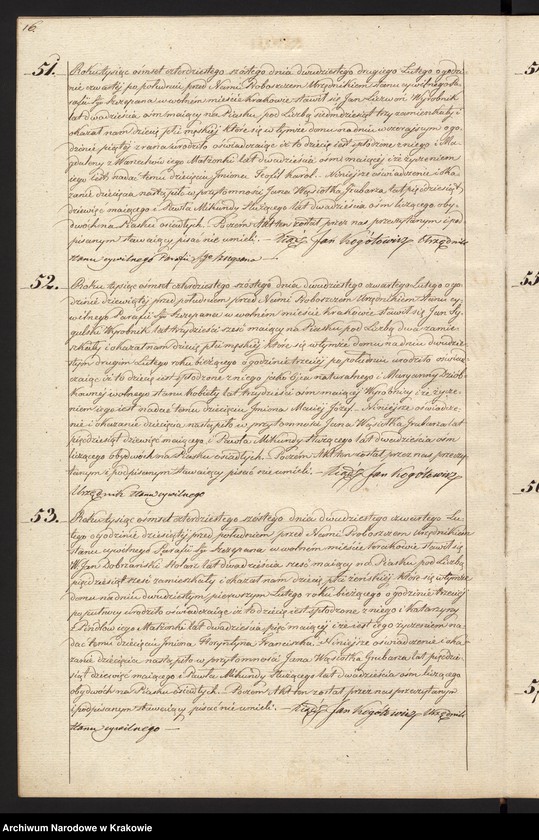 16.
51.
Roku tysiąc ośmset czterdziestego szóstego dnia dwudziestego drugiego Lutego o godzi
nie czwartej po południu przed Nami Proboszczem Urzędnikiem Stanu cywilnego Pa
rafii Sgo Szczepana w wolnem mieście Krakowie stawił się Jan Wyrobnik
lat dwadzieścia ośm mający na Piasku pod Liczbą siedmdziesiąt trzy zamieszkały i
okazał nam dziecię płci męskiej które się w tymże domu na dniu wczorajszym o go
dzinie piątej z rana urodziło oświadczając że to dziecię jest spłodzone z niego i Ma
gdaleny z jego Małżonki lat dwadzieścia ośm mającej i że życzeniem
jego jest nadać temu dziecięciu Imiona Teofil Karol. Niniejsze oświadczenie i oka
zanie dziecięcia nastąpiło w przytomności Jana Wąsiołka Grubarza lat pięćdziesiąt
dziewięć mającego i Pawła Mikundy Służącego lat dwadzieścia ośm liczącego oby
dwóch na Piasku osiadłych. Poczem Akt ten został przez nas przeczytanym i pod
pisanym Stawający pisać nie umieli. Xiądz Jan Rogółowicz Urzędnik
stanu cywilnego Parafii Sgo Szczepana
52.
Roku tysiąc ośmset czterdziestego szóstego dnia dwudziestego czwartego Lutego o go
dzinie dziewiątej przed południem przed Nami Proboszczem Urzędnikiem Stanu cy
wilnego Parafii Sgo Szczepana w wolnem mieście Krakowie stawił się Jan
Wyrobnik lat trzydzieści sześć mający na Piasku pod Liczbą dwa zamie
szkały i okazał nam dziecię płci męskiej które się w tymże domu na dniu dwudzie
stym drugim Lutego roku bieżącego o godzinie trzeciej po południu urodziło oświad
czając że to dziecię jest spłodzone z niego jako Ojca naturalnego i Maryanny
wolnego stanu kobiety lat trzydzieści ośm mającej Wyrobnicy i że życze
niem jego jest nadać temu dziecięciu Imiona Maciej Józef. Niniejsze oświadcze
nie i okazanie dziecięcia nastąpiło w przytomności Jana Wąsiołka Grubarza lat
pięćdziesiąt dziewięć mającego i Pawła Mikundy Służącego lat dwadzieścia ośm
liczącego obydwóch na Piasku osiadłych. Poczem Akt ten został przez nas przeczy
tanym i podpisanym Stawający pisać nie umieli. Xiądz Jan Rogółowicz
Urzędnik stanu cywilnego
53.
Roku tysiąc ośmset czterdziestego szóstego dnia dwudziestego czwartego Lu
tego o godzinie dziesiątej przed południem przed Nami Proboszczem Urzędnikiem
Stanu cywilnego Parafii Sgo Szczepana w wolnem mieście Krakowie stawił się
W. Jan Dobrzański Stolarz lat dwadzieścia sześć mający na Piasku pod Liczbą
pięćdziesiąt sześć zamieszkały i okazał nam dziecię płci żeńskiej które się w tymże
domu na dniu dwudziestym pierwszym Lutego roku bieżącego o godzinie trzeciej
po północy urodziło oświadczając że to dziecię jest spłodzone z niego i Katarzyny
z jego Małżonki lat dwadzieścia pięć mającej i że jest jego życzeniem na
dać temu dziecięciu Imiona Krystyna Franciszka. Niniejsze oświadczenie i oka
zanie dziecięcia nastąpiło w przytomności Jana Wąsiołka Grubarza lat pięćdzie
siąt dziewięć mającego i Pawła Mikundy Służącego lat dwadzieścia ośm liczącego
obydwóch na Piasku osiadłych. Poczem Akt ten został przez nas przeczytanym
i podpisanym Stawający pisać nie umieli. Xiądz Jan Rogółowicz Urzędnik
stanu cywilnego
Archiwum Narodowe w Krakowie